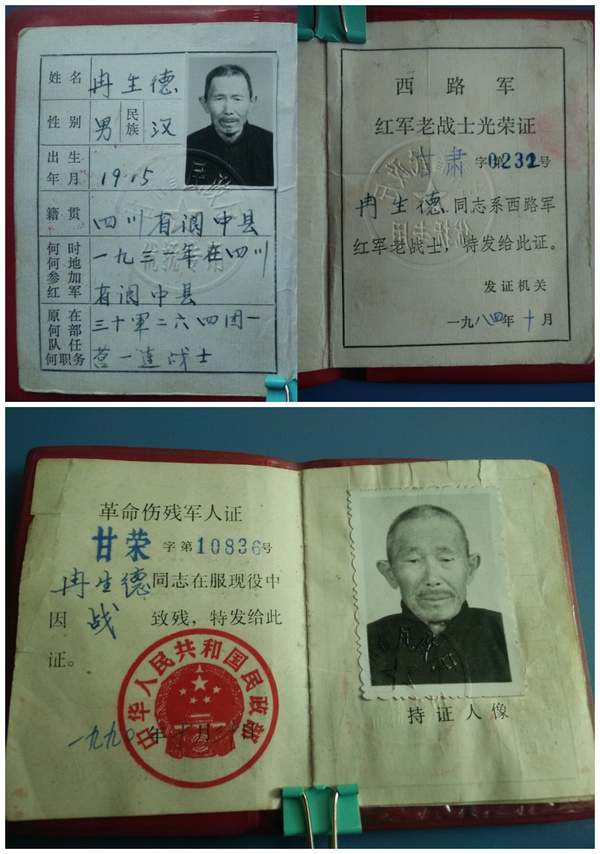 姓名 冉生德
性别 男 民族 汉
出生年月 1915
籍贯 四川省阆中县
何时何地参加红军 一九三六年在四川
省阆中县
原在何部队任何职务 三十軍二六四团一
营一连战士
西路军
红军老战士光荣证
甘肃字第0232号
冉生德同志系西路军
红军老战士，特发给此证。
发证机关
一九八四年十月
革命伤残军人证
甘荣字第10836号
冉生德同志在服现役中
因战致残，特发给此
证。
中华人民共和国民政部
一九九〇年
持证人像